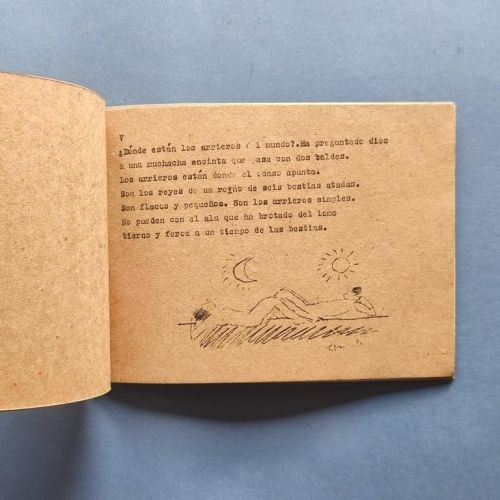 V
¿Dónde están los arrieros d l mundo?.Ha preguntado dios
a una muchacha encinta que pasa con dos baldes.
Los arrieros están donde el ocaso apunta.
Son los reyes de un reino de seis bestias atadas.
Son flacos y pequeños. Son los arrieros simples.
No pueden con el ala que ha brotado del lomo
tierno y feroz a un tiempo de las bestias.